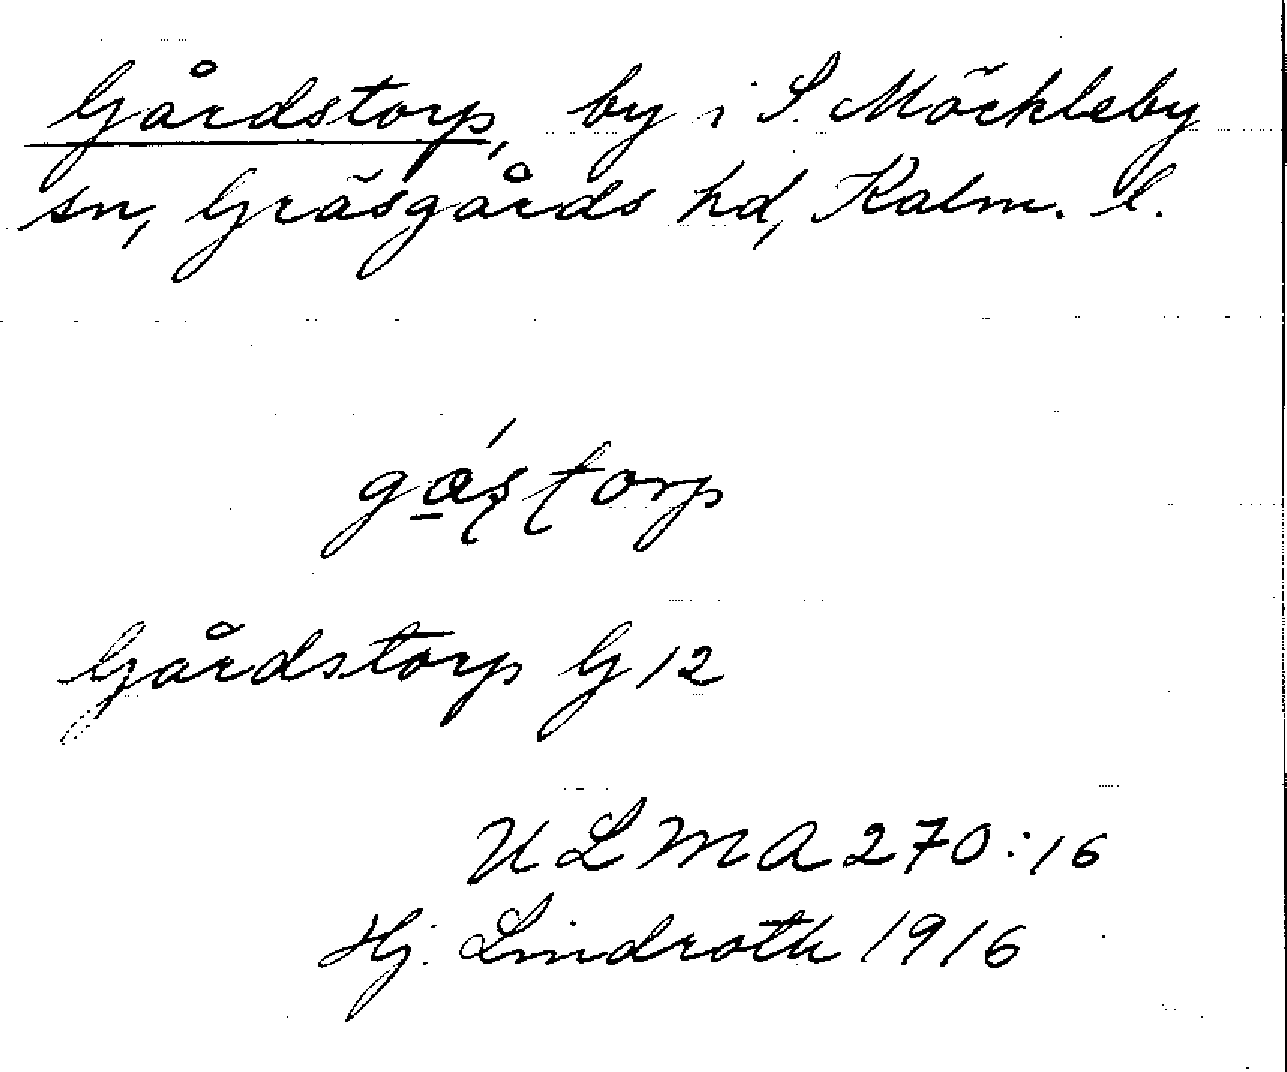 Gårdstorp, by i S. Möckleby
sn, Gräsgårds hd, Kalm. l.
Gårdstorp G 12
ULMA 270:16
Hj. Lindroth 1916